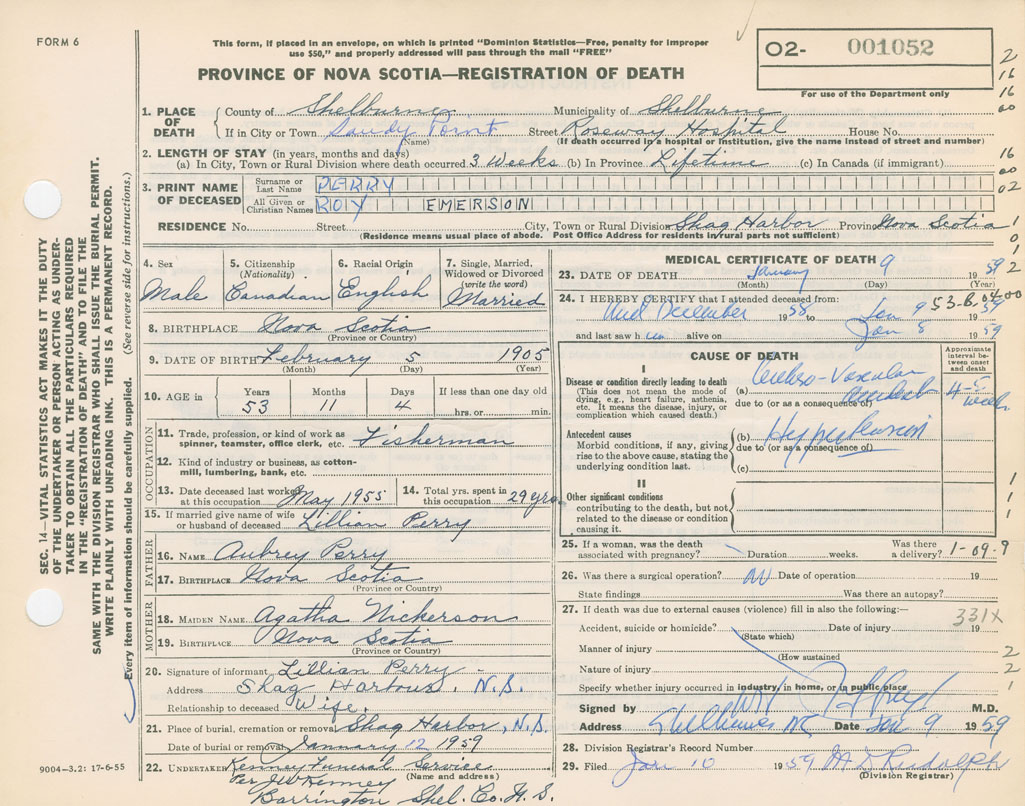 FORM 6
This form, if placed in an envelope, on which is printed "Dominion Statistics—Free, penalty for improper
use $50," and properly addressed will pass through the mail "FREE"
PROVINCE OF NOVA SCOTIA—REGISTRATION OF DEATH
O2- 001052
For use of the Department only
2
16
16
00
16
00
02
1
0
1
2
1. PLACE OF DEATH
County of Shelburne Municipality of Shelburne
If in City or Town Sandy Point Street Roseway Hospital House No.
(Name) (If death occurred in a hospital or institution, give the name instead of street and number)
2. LENGTH OF STAY (in years, months and days)
(a) In City, Town or Rural Division where death occurred 3 Weeks (b) In Province Lifetime (c) In Canada (if immigrant)
3. PRINT NAME OF DECEASED
Surname or Last Name PERRY
All Given or Christian Names ROY EMERSON
RESIDENCE No. Street City, Town or Rural Division Shag Harbor Province Nova Scotia
(Residence means usual place of abode. Post Office Address for residents in rural parts not sufficient)
4. Sex
Male
5. Citizenship
(Nationality)
Canadian
6. Racial Origin
English
7. Single, Married,
Widowed or Divorced
(write the word)
Married
8. BIRTHPLACE Nova Scotia
(Province or Country)
9. DATE OF BIRTH February 5 1905
(Month) (Day) (Year)
10. AGE in
Years Months Days If less than one day old
53 11 4 hrs. or min.
OCCUPATION
11. Trade, profession, or kind of work as
spinner, teamster, office clerk, etc. Fisherman
12. Kind of industry or business, as cotton-
mill, lumbering, bank, etc.
13. Date deceased last worked
at this occupation May 1955
14. Total yrs. spent in
this occupation 29 yrs.
15. If married give name of wife
or husband of deceased Lillian Perry
FATHER
16. NAME Aubrey Perry
17. BIRTHPLACE Nova Scotia
(Province or Country)
MOTHER
18. MAIDEN NAME Agatha Nickerson
19. BIRTHPLACE Nova Scotia
(Province or Country)
20. Signature of informant Lillian Perry
Address Shag Harbour, N.S.
Relationship to deceased Wife.
21. Place of burial, cremation or removal Shag Harbor, N.S.
Date of burial or removal January 12 1959
22. UNDERTAKER Kenney Funeral Service
Per J W Kenney
(Name and address)
Barrington Shel. Co. N.S.
9004—3.2: 17-6-55
MEDICAL CERTIFICATE OF DEATH
23. DATE OF DEATH January 9 1959
(Month) (Day) (Year)
24. I HEREBY CERTIFY that I attended deceased from:
Mid December 1958 to Jan 9 1959
53-B 0400
and last saw him alive on Jan 8 1959
CAUSE OF DEATH
Approximate
interval be-
tween onset
and death
I
Disease or condition directly leading to death
(This does not mean the mode of
dying, e.g., heart failure, asthenia,
etc. It means the disease, injury, or
complication which caused death.)
(a) Cerebro-Vascular
accident
due to (or as a consequence of)
4-5
weeks
Antecedent causes
Morbid conditions, if any, giving
rise to the above cause, stating the
underlying condition last.
(b) Hypertension
due to (or as a consequence of)
(c)
II
Other significant conditions
contributing to the death, but not
related to the disease or condition
causing it.
1
1
1
25. If a woman, was the death
associated with pregnancy? Duration weeks. Was there
a delivery? 1-09-9
26. Was there a surgical operation? no Date of operation 19
State findings Was there an autopsy?
27. If death was due to external causes (violence) fill in also the following:—
331X
Accident, suicide or homicide? Date of injury 19
(State which)
Manner of injury 2
(How sustained
Nature of injury 2
Specify whether injury occurred in industry, in home, or in public place 1
Signed by M.D.
Address Shelburne NS Date Jan 9 1959
28. Division Registrar's Record Number
29. Filed Jan 10 1959 Rudolph
(Division Registrar)
SEC. 14—VITAL STATISTICS ACT MAKES IT THE DUTY
OF THE UNDERTAKER OR PERSON ACTING AS UNDER-
TAKER TO OBTAIN ALL THE PARTICULARS REQUIRED
IN THE "REGISTRATION OF DEATH" AND TO FILE THE
SAME WITH THE DIVISION REGISTRAR WHO SHALL ISSUE THE BURIAL PERMIT.
WRITE PLAINLY WITH UNFADING INK. THIS IS A PERMANENT RECORD.
Every item of information should be carefully supplied. (See reverse side for instructions.)